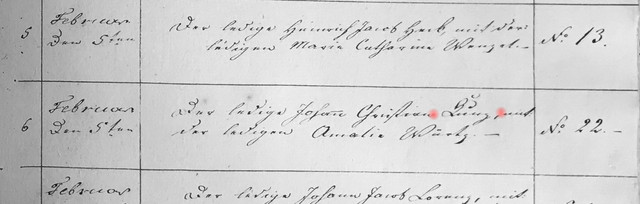 5 Februar Der ledige Heinrich Jacob Heck, mit der
Den 5ten ledigen Marie Catharine Wenzel.— No 13.
6 Februar Der ledige Johann Christian Kunz, mit
Den 5ten der ledigen Amalie Würtz.— No 22.—
Februar Der ledige Johann Jacob Lorenz, mit